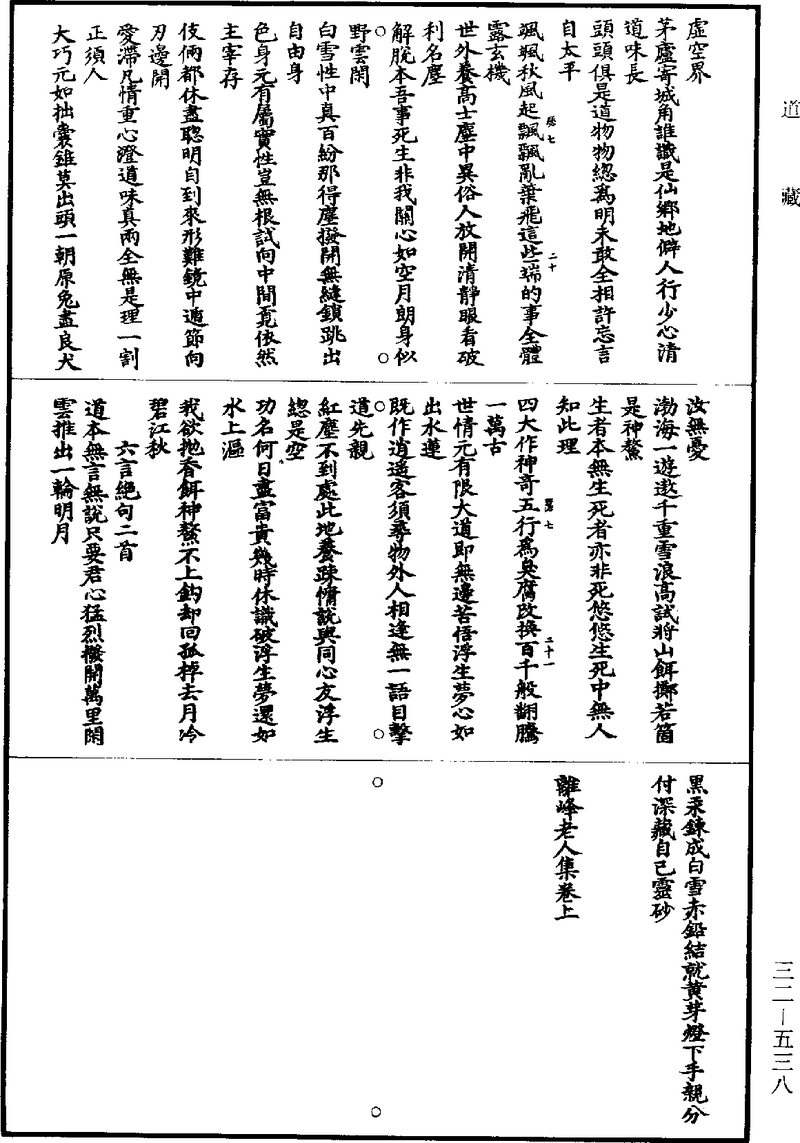 道藏
虛空界
茅廬寄城角誰識是仙鄉地僻人行少心清
道味長
頭頭俱是道物物總爲明未敢全相許忘言
自太平
颯颯秋風起飄飄亂葉飛這些端的事全體
露玄機
世外養高士塵中異俗人放開清靜眼看破
利名塵
解脫本吾事死生非我關心如空月朗身似
野雲閑
白雪性中真百紛那得塵撥開無縫鎖跳出
自由身
色身元有屬實性豈無根試向中間覔依然
主宰存
伎倆都休盡聦明自到來形難鏡中遁節向
刃邊開
愛滯凡情重心澄道味真兩全無是理一割
正須人
大巧元如拙囊錐莫出頭一朝原兔盡良犬
汝無憂
渤海一遊遨千重雪浪高試將山餌擲若箇
是神鰲
生者本無生死者亦非死悠悠生死中無人
知此理
四大作神奇五行爲臭腐改換百千般翻騰
一萬古
世情元有限大道即無邊苦悟浮生夢心如
出水蓮
既作逍遥客須尋物外人相逢無一語目擊
道先親
紅塵不到處此地養踈慵説與同心友浮生
總是空
功名何日盡富貴幾時休識破浮生夢還如
水上漚
我欲抛香餌神鰲不上鈎却回孤棹去月冷
碧江秋
六言絶句二首
道本無言無説只要君心猛烈撥開萬里閑
雲推出一輪明月
黑汞鍊成白雪赤鉛結就黄芽燈下手親分
付深藏自己靈砂
離峰老人集卷上
三二—五三八